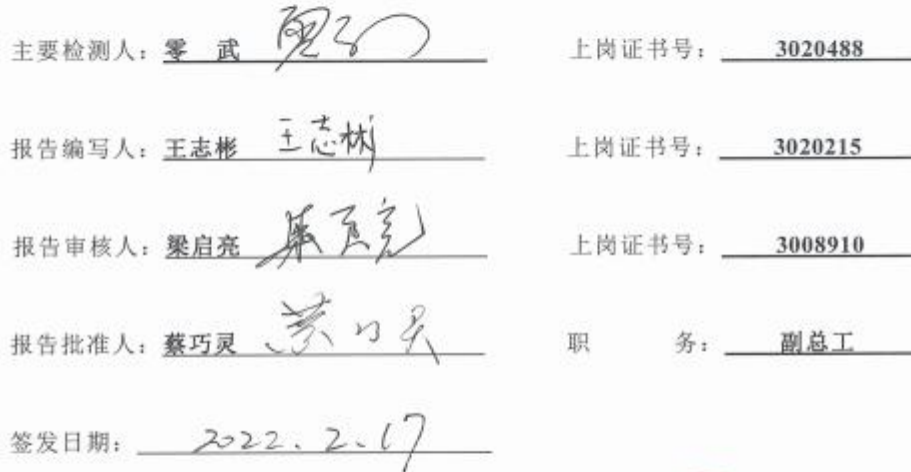 主要检测人：零 武 零武 上岗证书号：3020488
报告编写人：王志彬 王志彬 上岗证书号：3020215
报告审核人：梁启亮 梁启亮 上岗证书号：3008910
报告批准人：蔡巧灵 蔡巧灵 职 务：副总工
签发日期：2022.2.17